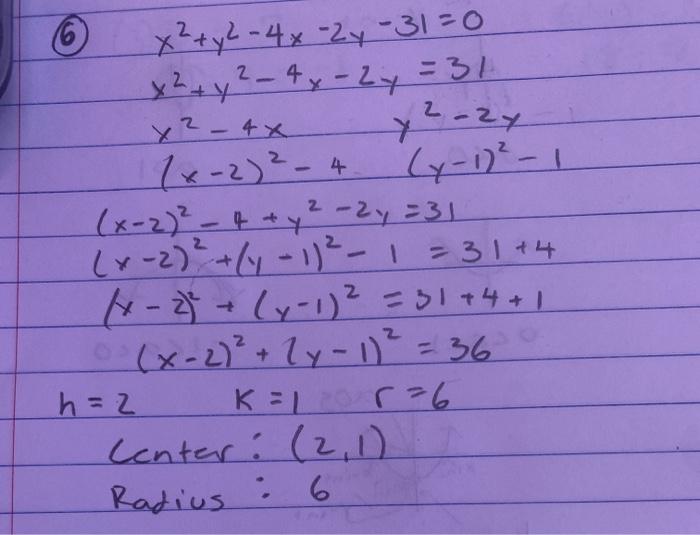 ⑥ x² + y² - 4x - 2y - 31 = 0
x² + y² - 4x - 2y = 31
x² - 4x y² - 2y
(x-2)² - 4 (y-1)² - 1
(x-2)² - 4 + y² - 2y = 31
(x-2)² + (y-1)² - 1 = 31 + 4
(x-2)² + (y-1)² = 31 + 4 + 1
(x-2)² + (y-1)² = 36
h = 2 K = 1 r = 6
Center : (2,1)
Radius : 6